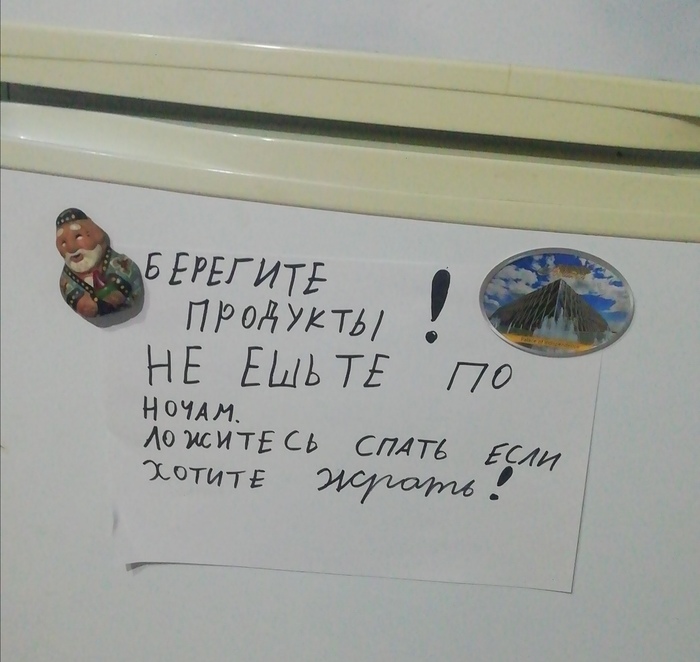 БЕРЕГИТЕ
ПРОДУКТЫ !
НЕ ЕШЬТЕ ПО
НОЧАМ.
ЛОЖИТЕСЬ СПАТЬ ЕСЛИ
ХОТИТЕ жрать!